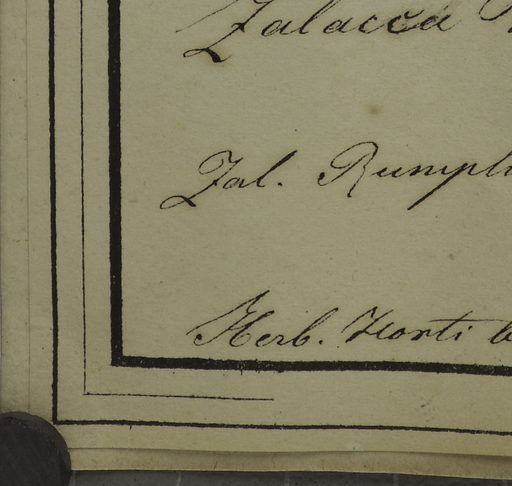 Zalacca
Zal. Rumph
Herb. Horti